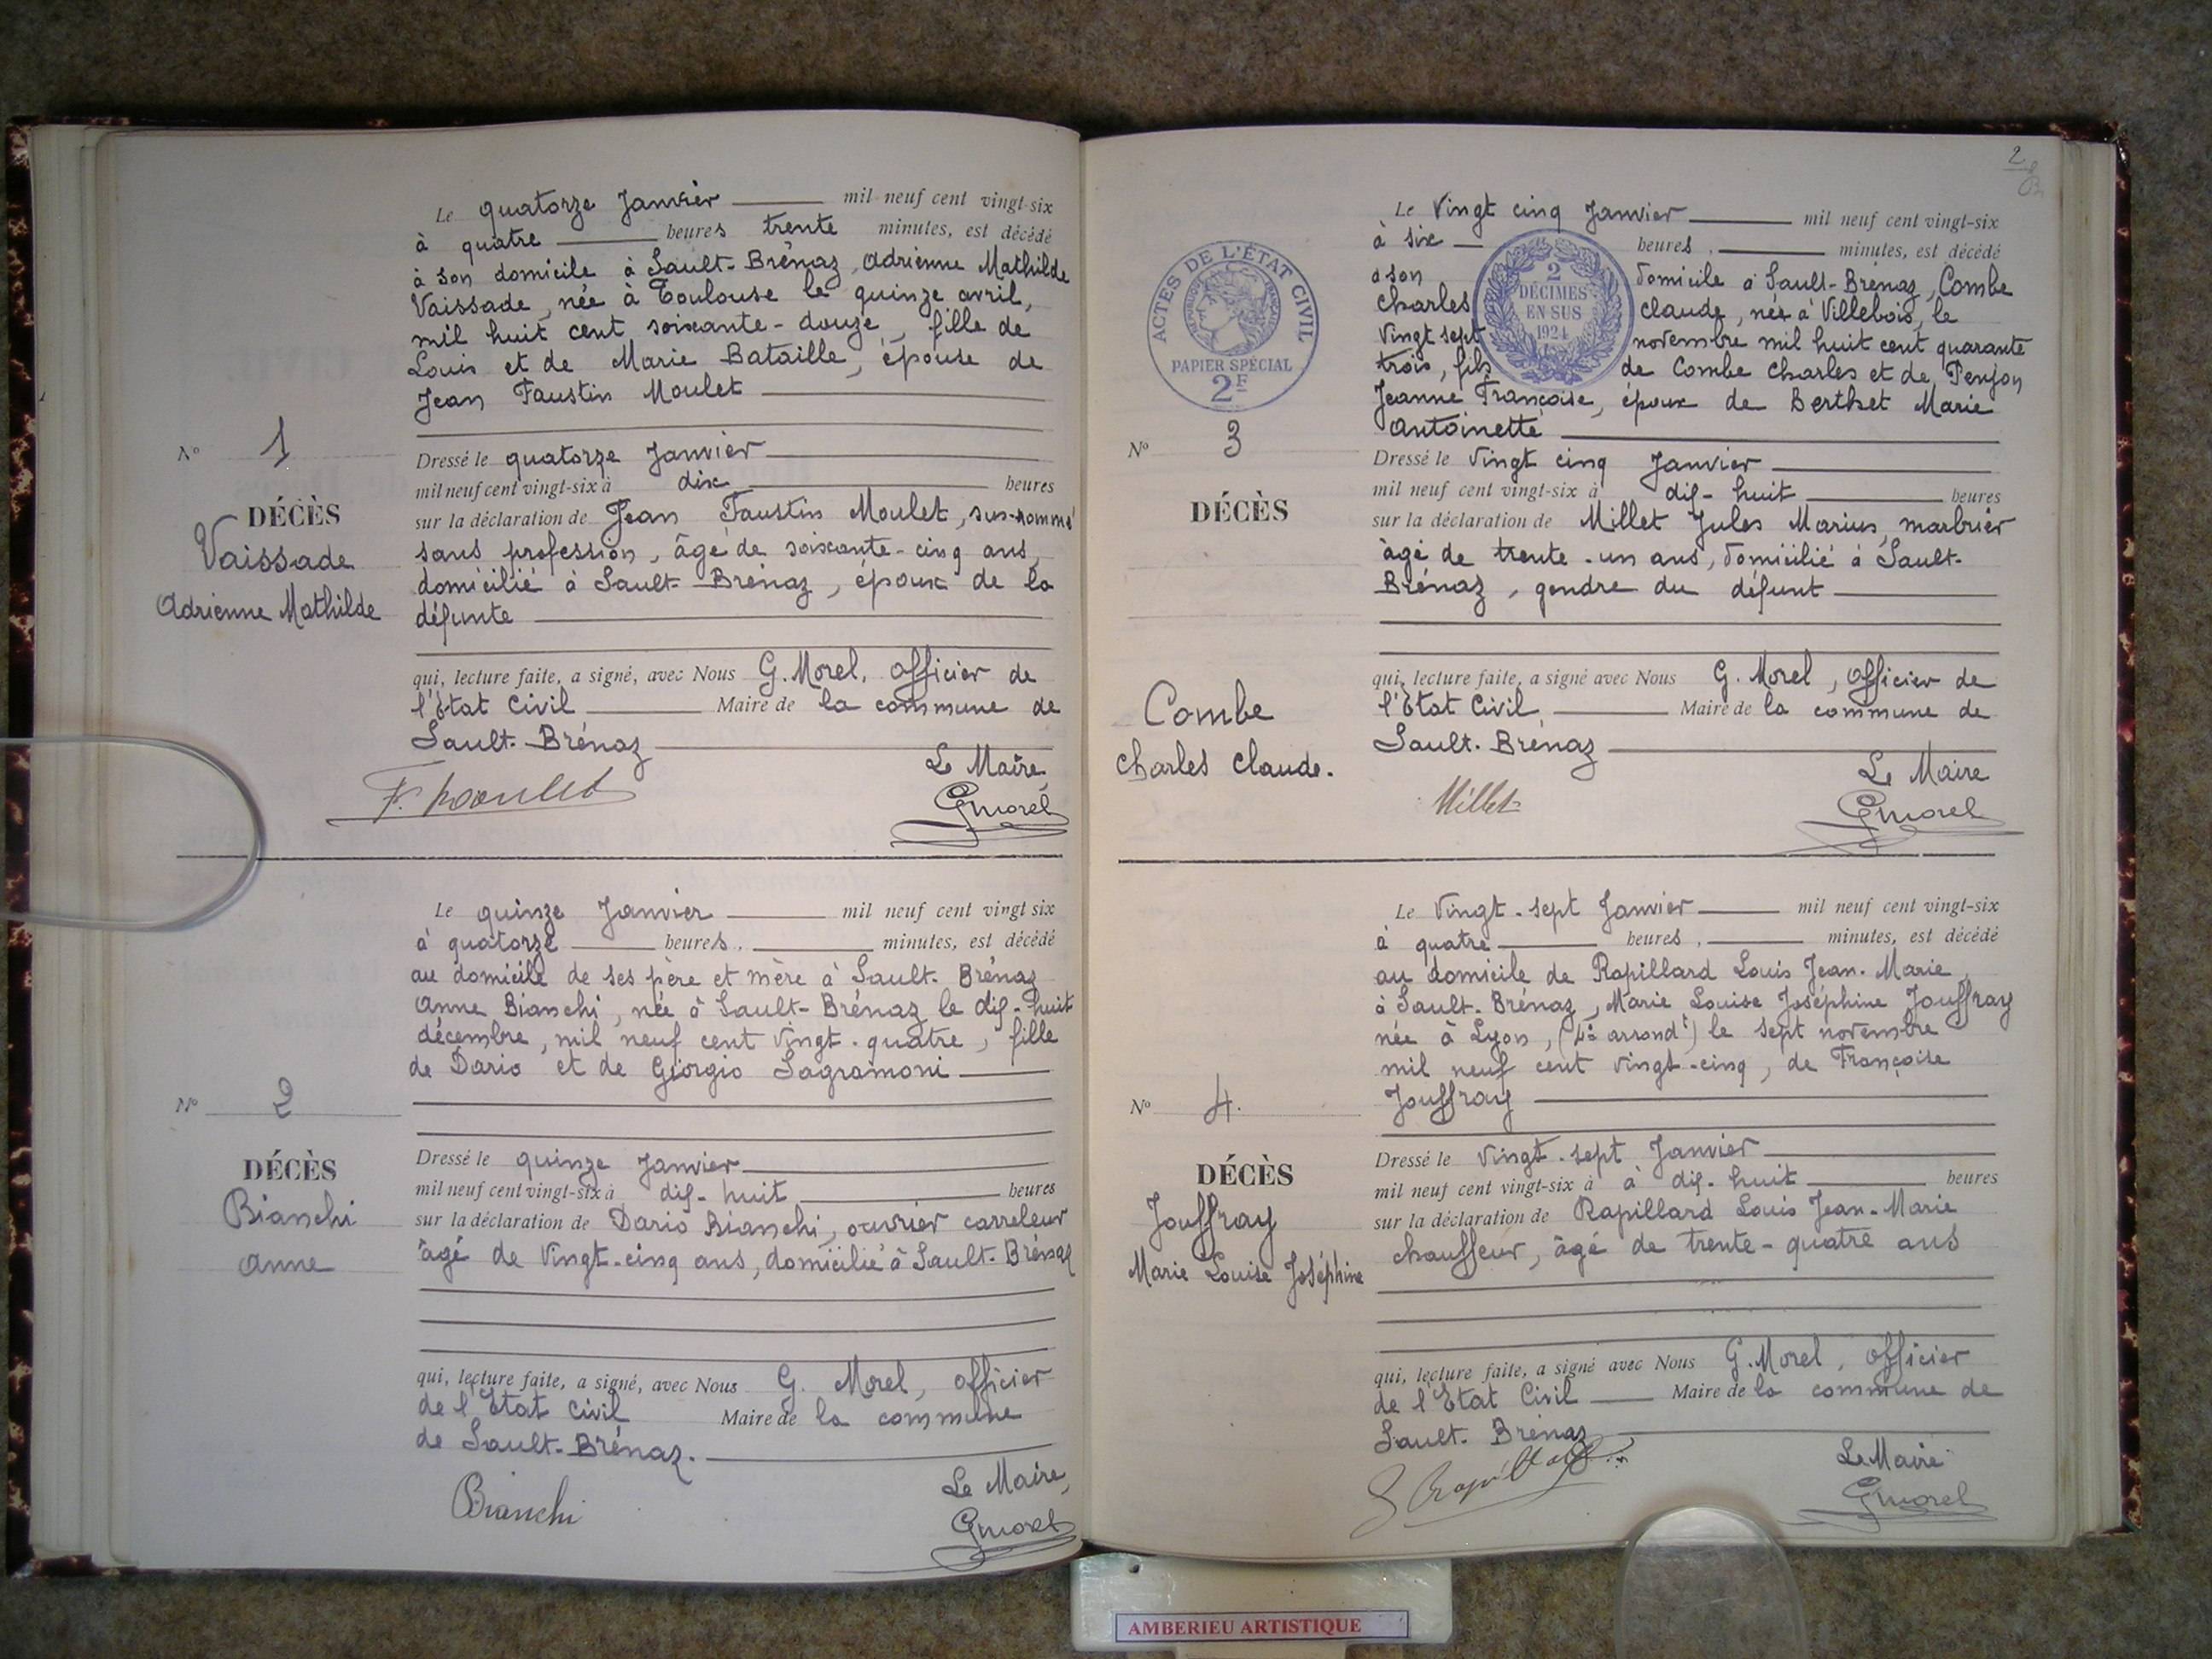 Le quatorze Janvier mil neuf cent vingt-six
à quatre heures trente minutes, est décédé
à son domicile à Sault-Brénaz, Adrienne Mathilde
Vaissade, née à Toulouse le quinze avril,
mil huit cent soixante-douze, fille de
Louis et de Marie Bataille, épouse de
Jean Faustin Moulet
Nº 1
DÉCÈS
Vaissade
Adrienne Mathilde
Dressé le quatorze Janvier
mil neuf cent vingt-six à dix heures
sur la déclaration de Jean Faustin Moulet, sus-nommé
sans profession, âgé de soixante-cinq ans,
domicilié à Sault-Brénaz, époux de la
défunte
qui, lecture faite, a signé, avec Nous G. Morel, officier de
l'Etat Civil Maire de la commune de
Sault-Brénaz
Le Maire,
F. Moulet
GMorel
Le quinze Janvier mil neuf cent vingt six
à quatorze heures, minutes, est décédé
au domicile de ses père et mère à Sault-Brénaz
Anne Bianchi, née à Sault-Brénaz le dix-huit
décembre, mil neuf cent vingt-quatre, fille
de Dario et de Giorgio Sagramoni
Nº 2
DÉCÈS
Bianchi
Anne
Dressé le quinze Janvier
mil neuf cent vingt-six à dix-huit heures
sur la déclaration de Dario Bianchi, ouvrier carreleur
âgé de vingt-cinq ans, domicilié à Sault-Brénaz
qui, lecture faite, a signé, avec Nous G. Morel, officier
de l'Etat civil Maire de la commune
de Sault-Brénaz.
Le Maire,
Bianchi
GMorel
2
ACTES DE L'ÉTAT CIVIL
RÉPUBLIQUE FRANÇAISE
PAPIER SPÉCIAL
2F
2
DÉCIMES
EN SUS
1924
Le vingt cinq Janvier mil neuf cent vingt-six
à six heures, minutes, est décédé
à son domicile à Sault-Brénaz, Combe
Charles Claude, née à Villebois, le
vingt sept novembre mil huit cent quarante
trois, fils de Combe Charles et de Penjon
Jeanne Françoise, époux de Berthet Marie
Antoinette
Nº 3
DÉCÈS
Combe
Charles Claude.
Dressé le vingt cinq Janvier
mil neuf cent vingt-six à dix-huit heures
sur la déclaration de Millet Jules Marius, marbrier
âgé de trente-un ans, domicilié à Sault-
Brénaz, gendre du défunt
qui, lecture faite, a signé avec Nous G. Morel, officier de
l'Etat Civil, Maire de la commune de
Sault-Brénaz
Le Maire
Millet
GMorel
Le vingt-sept Janvier mil neuf cent vingt-six
à quatre heures, minutes, est décédé
au domicile de Rapillard Louis Jean-Marie,
à Sault-Brénaz, Marie Louise Joséphine Jouffray
née à Lyon, (4e arrondt) le sept novembre
mil neuf cent vingt-cinq, de Françoise
Jouffray
Nº 4.
DÉCÈS
Jouffray
Marie Louise Joséphine
Dressé le vingt-sept Janvier
mil neuf cent vingt-six à à dix-huit heures
sur la déclaration de Rapillard Louis Jean-Marie
chauffeur, âgé de trente-quatre ans
qui, lecture faite, a signé avec Nous G. Morel, officier
de l'Etat Civil Maire de la commune de
Sault-Brénaz
Le Maire
Rapillard
GMorel
AMBERIEU ARTISTIQUE